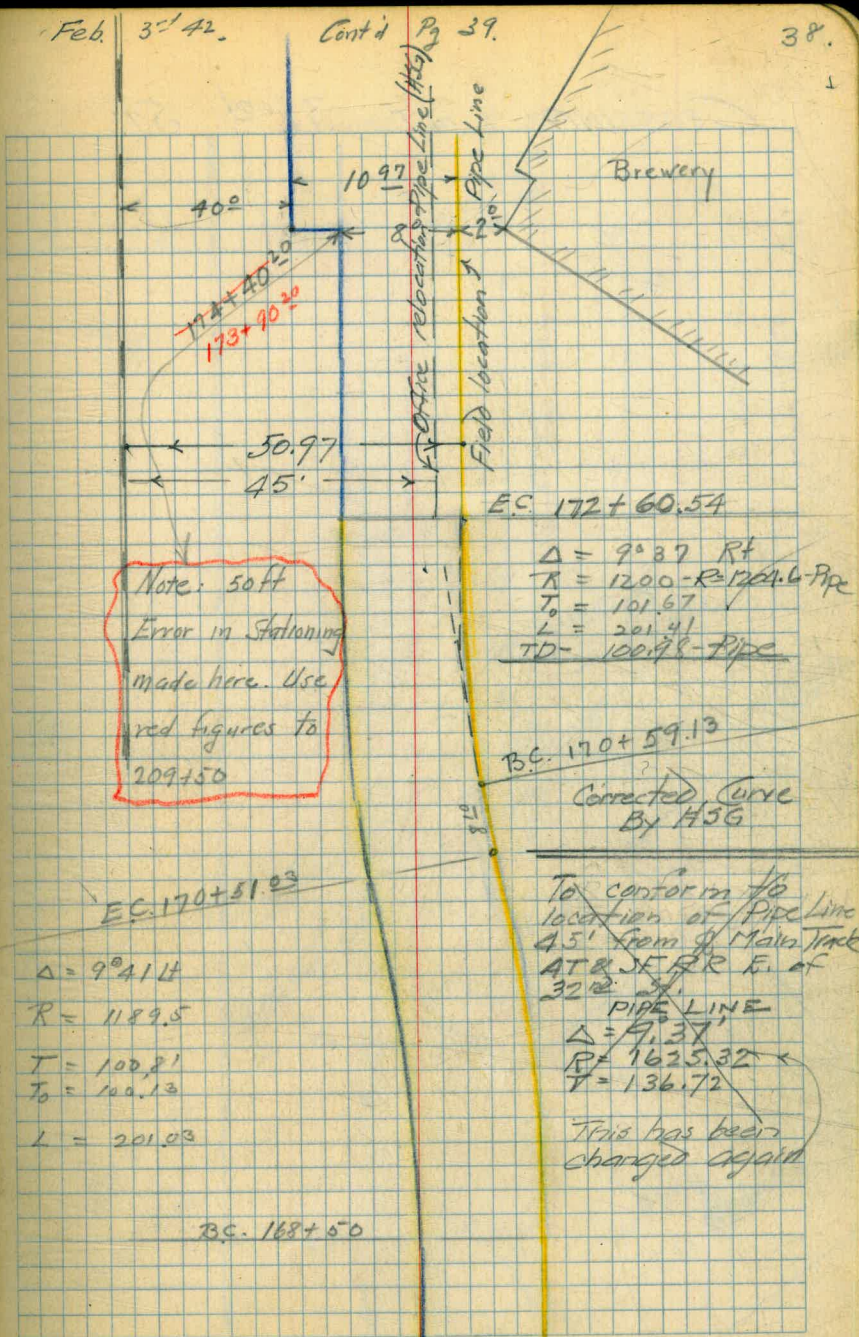 Feb. 3rd 42. Cont'd Pg 39. 38.
1
Office relocation Pipe Line (HSG)
Field location Pipe Line
Brewery
10 97
40 0
8 2.10
174+40 20
173+90 20
50.97
45'
E.C. 172+60.54
Δ = 9°37 Rt
R = 1200 - R=1204.6-Pipe
To = 101.67
L = 201.41
TD- 100.98-Pipe
Note: 50 ft
Error in Stationing
made here. Use
red figures to
209+50
B.C. 170+59.13
8 10
Corrected Curve
By HSG
E.C. 170+51.03
Δ = 9°41 Lt
R = 1189.5
T = 100.81
To = 100.13
L = 201.03
To conform to
location of Pipe Line
45' from ℄ Main Track
AT & SF RR E. of
32nd St.
PIPE LINE
Δ = 9°37'
R = 1625.32
T = 136.72
This has been
changed again
B.C. 168+50